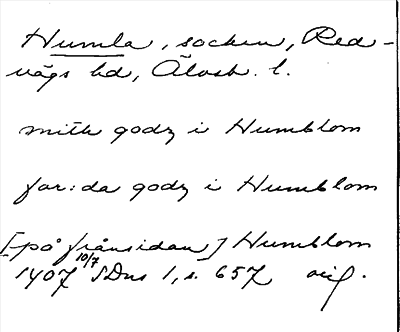 Humla, socken, Red-
vägs hd, Älvsb. l.
mith godz i Humblom
for:da godz i Humblom
[på frånsidan] Humblom
1407 10/7 SDns 1, s. 657 orig.